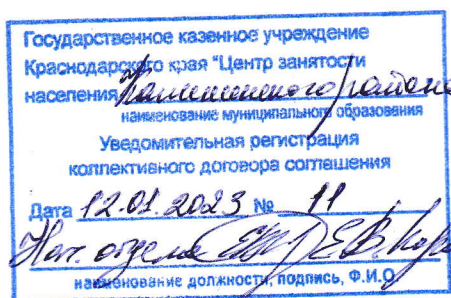 Государственное казенное учреждение
Краснодарского края "Центр занятости
населения Калининского района
наименование муниципального образования
Уведомительная регистрация
коллективного договора соглашения
Дата 12.01.2023 № 11
Нач. отдела Е.В.
наименование должности, подпись, Ф.И.О